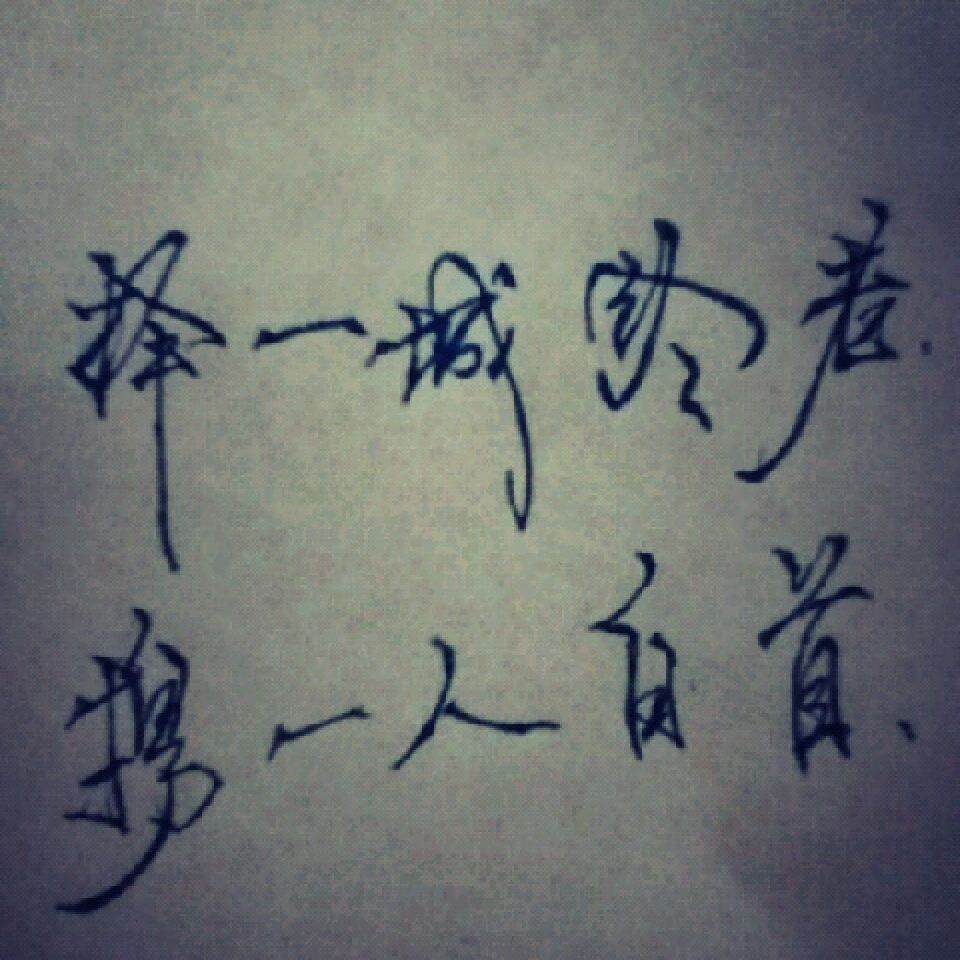 择一城终老.
携一人白首.